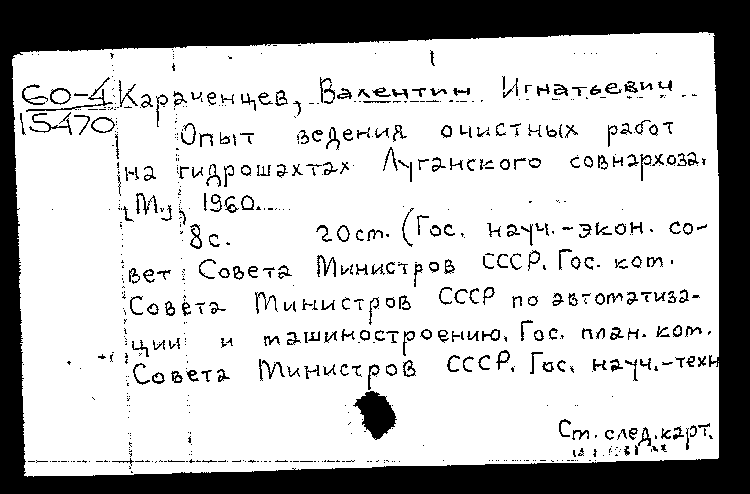 60-4
15470
Караченцев, Валентин Игнатьевич
Опыт ведения очистных работ
на гидрошахтах Луганского совнархоза.
[М.], 1960.
8с. 20 см. (Гос. науч.-экон. со-
вет Совета Министров СССР. Гос. ком.
Совета Министров СССР по автоматиза-
ции и машиностроению. Гос. план. ком.
Совета Министров СССР. Гос. науч.-техн
См. след. карт.